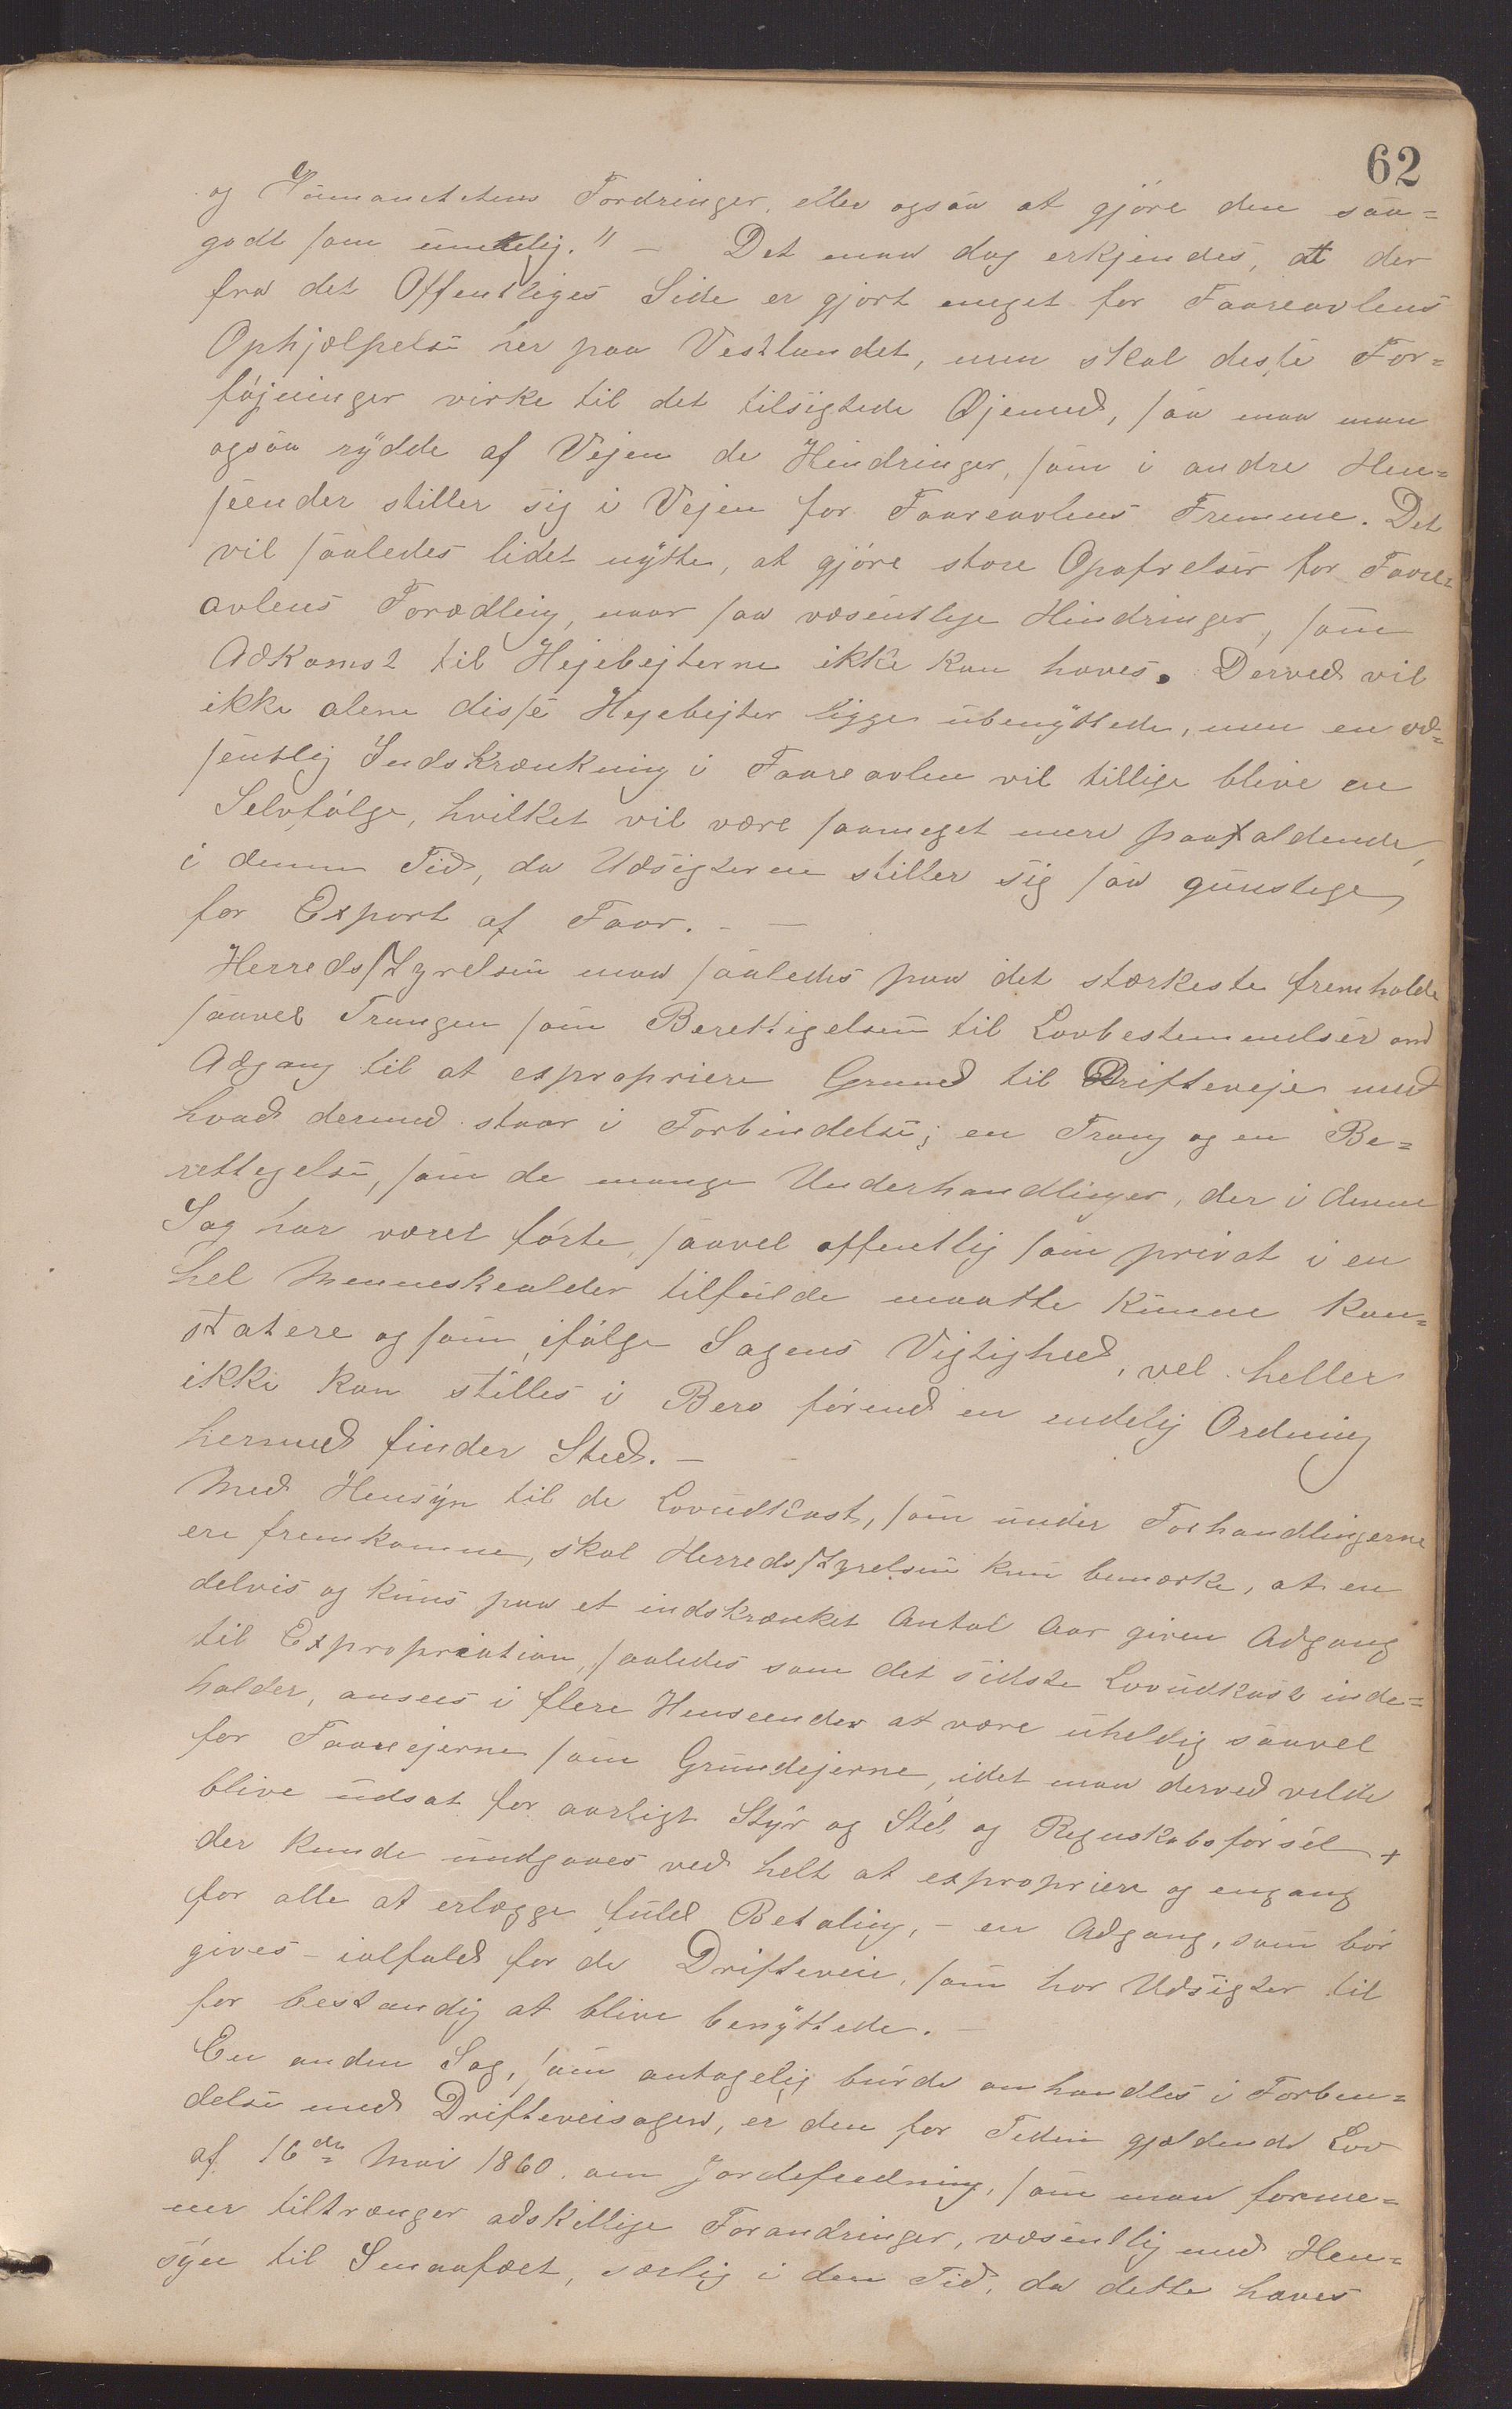 62
og Humanitetens Fordringer, eller ogsaa at gjöre den saa=
godt som umulig." — Det maa dog erkjendes, at der
fra det Offentliges Side er gjort meget for Faareavlens
Ophjælpelse her paa Vestlandet, men skal disse For=
föjninger virke til det tilsigtede Øjemed, saa maa man
ogsaa rydde af Vejen de Hindringer, som i andre Hen=
seender stiller sig i Vejen for Faareavlens Fremme. Det
vil saaledes lidet nytte, at gjöre store Opofrelser for Faare=
avlens Forædling, naar saa væsentlige Hindringer, som
Adkomst til Hejebejterne ikke kan haves. Derved vil
ikke alene disse Hejebejter ligge ubenyttede, men en væ=
sentlig Indskrænkning i Faareavlen vil tillige blive en
Selvfölge, hvilket vil være saameget mere paafaldende,
i denne Tid, da Udsigterne stiller sig saa gunstige
for Export af Faar. - —
Herredsstyrelsen maa saaledes paa det stærkeste fremholde
saavel Trangen som Berettigelsen til Lovbestemmelser om
Adgang til at expropriere Grund til Drifteveje med
hvad dermed staar i Forbindelse; en Trang og en Be=
rettigelse, som de mange Underhandlinger, der i denne
Sag har været förte, saavel offentlig som privat i en
hel Menneskealder tilfulde maatte kunne kon=
statere og som, ifölge Sagens Vigtighed, vel heller
ikke kan stilles i Bero förend en endelig Ordning
hermed finder Sted. —
Med Hensyn til de Lovudkast, som under Forhandlingerne
ere fremkomne, skal Herredsstyrelsen kun bemærke, at en
delvis og kuns paa et indskrænket Antal Aar given Adgang
til Expropriation, saaledes som det sidste Lovudkast inde=
holder, ansees i flere Henseender at være uheldig saavel
for Faareejerne som Grundejerne, idet man derved vilde
blive udsat for aarligt Styr og Stel og Regnskabsförsel +
der kunde undgaaes ved helt at expropriere og engang
for alle at erlægge fuld Betaling, - en Adgang, som bör
gives - ialfald for de Drifteveie, som har Udsigter til
for bestandig at blive benyttede. —
En anden Sag, som antagelig burde omhandles i Forbin=
delse med Drifteveisagen, er den for Tiden gjældende Lov
af 16de Mai 1860 om Jordefredning, som man forme=
ner tiltrænger adskillige Forandringer, væsentlig med Hen=
syn til Smaafæet, særlig i den Tid, da dette haves